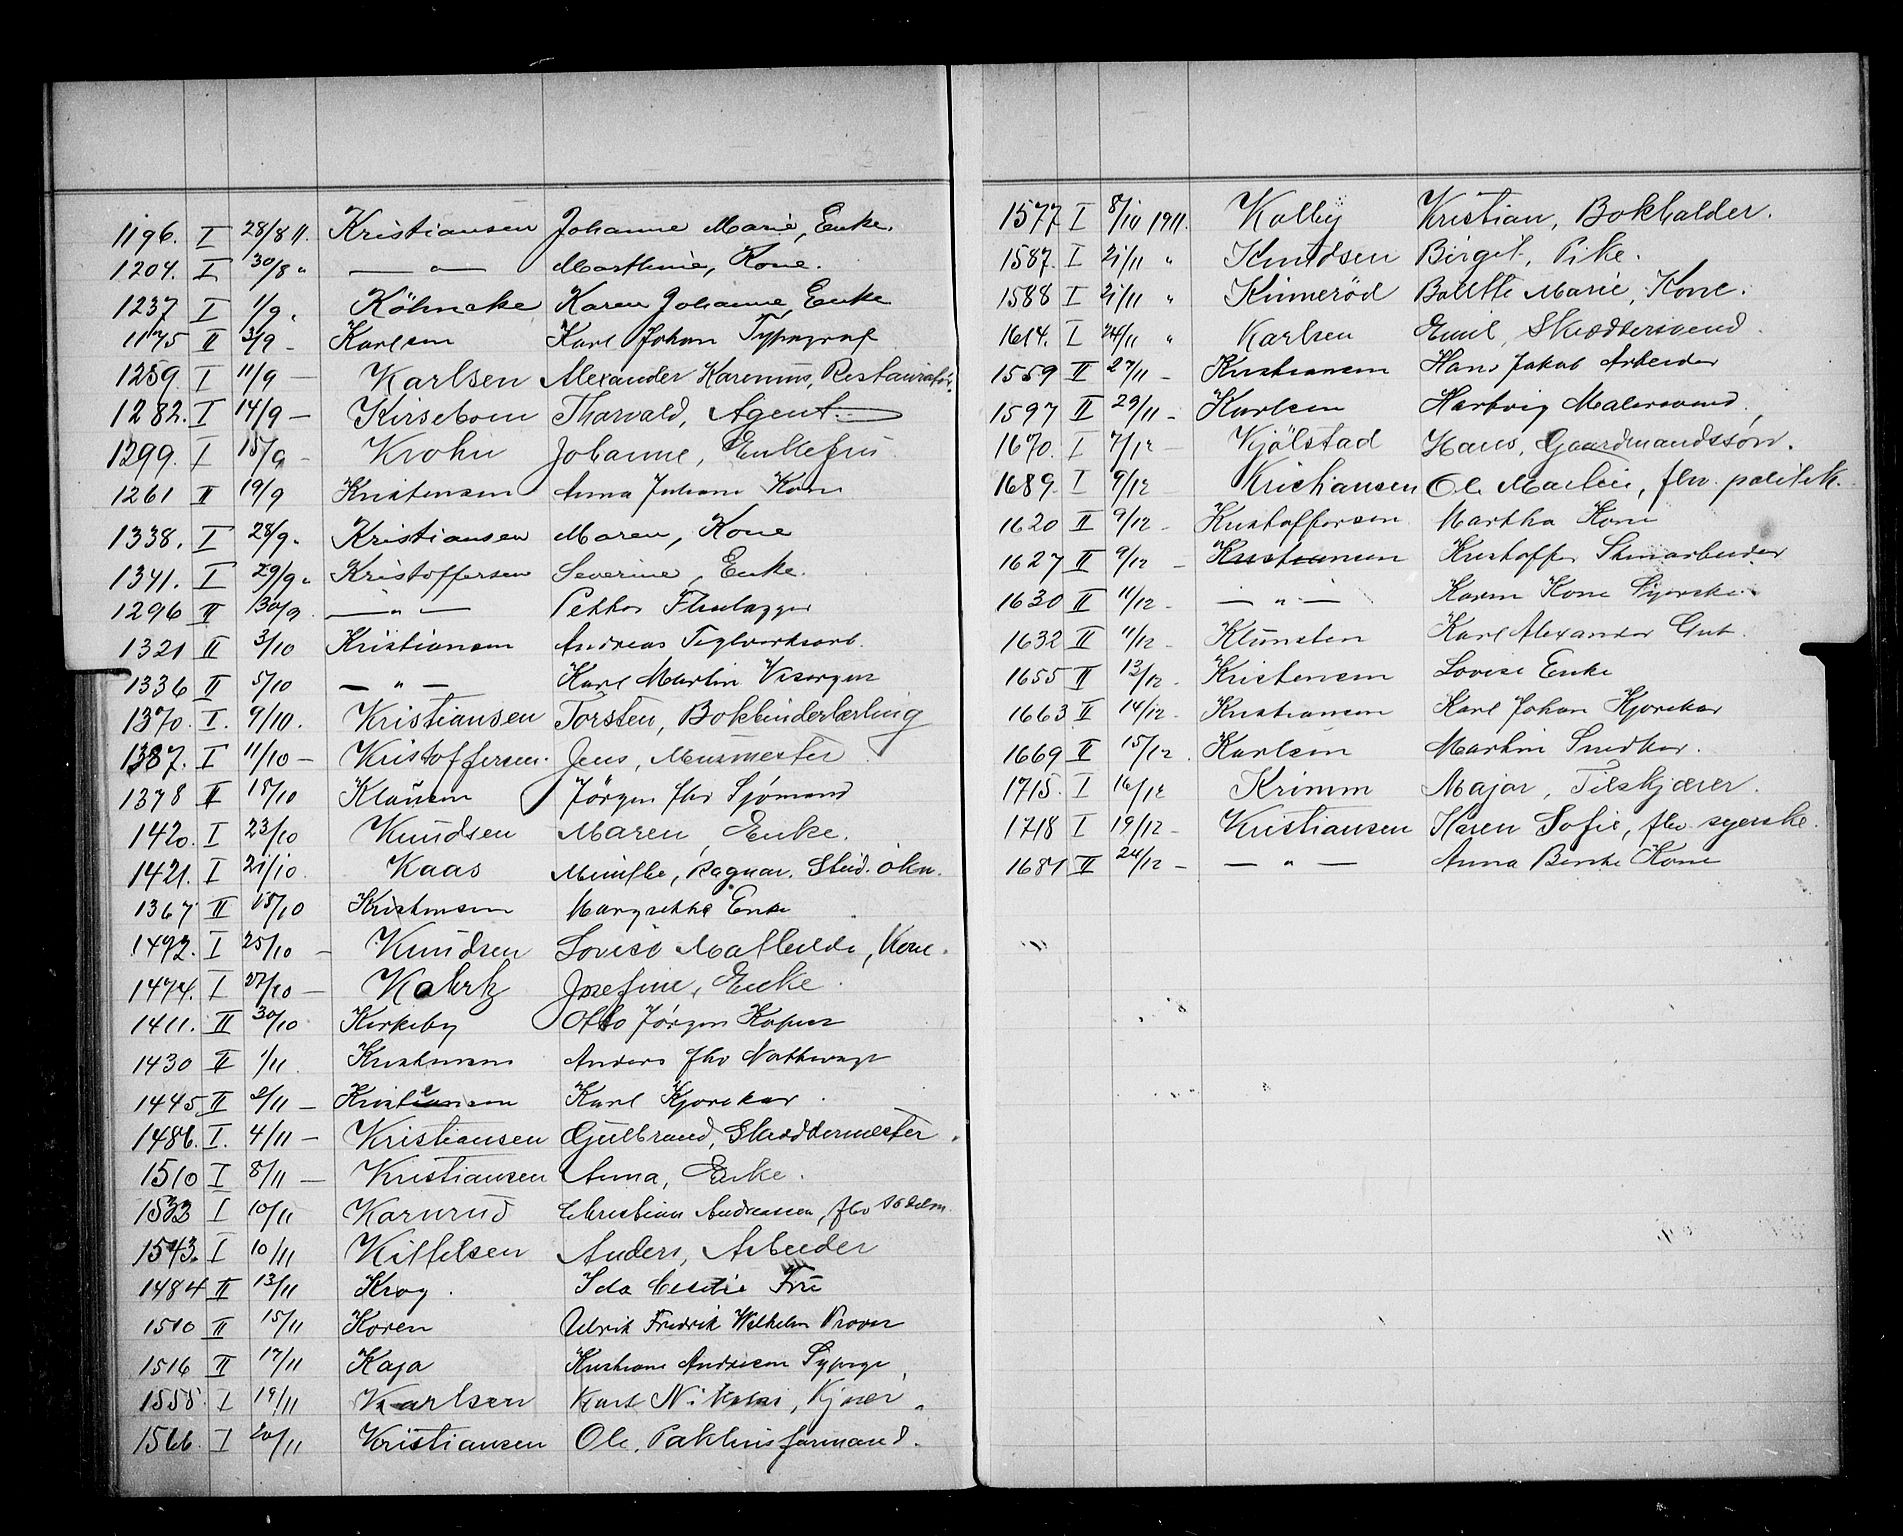 1196. I 28/8 11. Kristiansen Johanne Marie, Enke.
1204. I 30/8 " — " — Marthinie, Kone.
1237 I 1/9 " Köhncke Karen Johanne, Enke
1175 II 3/9 - Karlsen Karl Johan Typograf
1259. I 11/9 — Karlsen Alexander Karenius, Restauratør.
1282. I 14/9 — Kirseboem Thorvald, Agent.
1299. I 15/9 - Krohn Johanne, Enkefru
1261 II 19/9 Kristensen Anna Juliane Kone
1338. I 28/9 " Kristiansen Maren, Kone
1341. I 29/9 " Kristoffersen Severine, Enke.
1296 II 30/9. — " — Petter
1321 II 3/10 Kristiansen Andreas Teglverksarb.
1336 II 5/10 — " — Karl Martin Visergut
1370. I. 9/10. Kristiansen Torsten, Bokbinderlærling
1387. I 11/10 — Kristoffersen. Jens, Murmester
1378 II 15/10 Klausen Jörgen fhv Sjømand
1420. I 23/10 Knudsen Maren, Enke.
1421. I 21/10 Kaas Munthe, Ragnar. Stud. økn.
1367 II 15/10 Kristensen Margrethe Enke
1492. I 25/10 — Knudsen Lovise Mathilde, Kone.
1474. I 27/10 — Kahrtz Josefine, Enke.
1411. II 30/10 Kirkeby Otto Jörgen
1430 II 1/11. Kristensen Anders fhv Nattevagt
1445 II 2/11 — Kristensen Karl Kjørekar.
1486. I. 4/11 — Kristiansen Gulbrand, Skreddermester.
1510 I 8/11 — Kristiansen Anna, Enke.
1533 I 10/11 Karurud Christian Andreassen, fhv
1543. I 10/11 Kittelsen Anders, Arbeider
1484 II 13/11 Krog. Ida Cecilie Fru
1510 II 15/11 Koren Ulrik Fredrik Wilhelm Prover
1516 II 17/11 Kaja Kristiane Andresen Sypige
1558. I 19/11 Karlsen Karl Nikolai, Kjører.
1566. I 20/11 Kristiansen Ole, Pakhusformand.
1577 I 8/10 1911. Kolby Kristian, Bokholder.
1587. I 21/11 " Knudsen Birgit, Pike.
1588 I 21/11 " Kinnerød Bolette Marie, Kone.
1614. I 24/11 " Karlsen Emil, Skræddersvend.
1559 II 27/11 - Kristiansen Hans Jakob Arbeider
1597 II 29/11 - Karlsen Hartvig Malersvend.
1670. I 7/12 — Kjölstad Hans, Gaardmandssøn.
1689. I 9/12 Kristiansen Ole Martin, fhv. politik.
1620 II 9/12 - Kristoffersen Martha Kone
1627 II 9/12 - Kristiansen Kristoffer Stenarbeider
1630 II 11/12 - — " — Karen Kone Syerske.
1632 II 11/12 - Klunsten Karl Alexander Gut.
1655 II 13/12 - Kristensen Lovise Enke
1663 II 14/12 - Kristiansen Karl Johan Kjørekar
1669 II 15/12. Karlsen Martin Snedker.
1715. I 16/12 Krimm Major, Tilskjærer.
1718 I 19/12 - Kristiansen Karen Sofie, fhv. syerske.
1681 II 24/12 — — " — Anna Bertha Kone